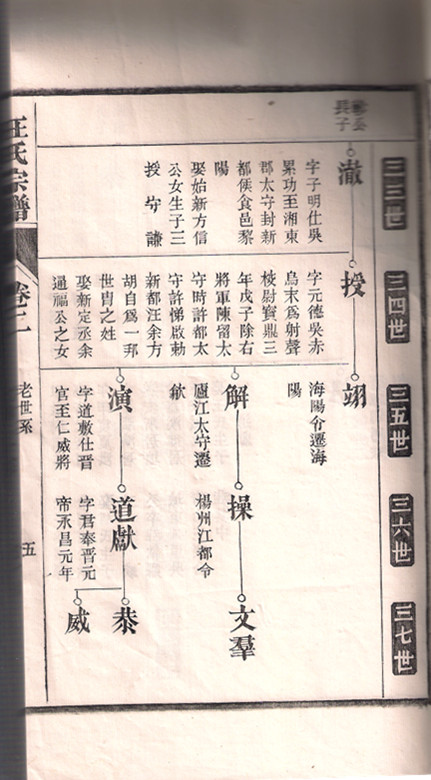 三三世
三四世
三五世
三六世
三七世
長子
澈
字子明仕吳
累功至湘東
郡太守封新
都候食邑黎
陽
娶始新方信
公女生子三
授 守 謙
授
字元德吳赤
烏末為射聲
校尉寳鼎三
年戊子除右
將軍陳留太
守時許都太
守許悌啟勅
新都汪余方
胡自為一邦
世胄之姓
娶新定丞余
福公之女
翊
海陽令遷海
陽
解
廬江太守遷
歙
演
字道敷仕晉
官王仁威將
操
楊州江都令
道獻
字君奉晉元
帝永昌元年
文羣
恭
威
汪氏宗譜
卷二
老世系
五